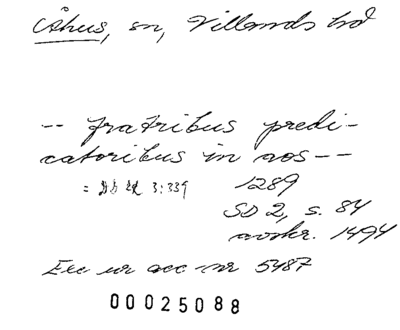 Åhus, sn, Villands hd
-- fratribus predi-
catoribus in aos --
= 3:339 1289
SD 2, s. 84
avskr. 1494
Exc ur acc nr 5487
00025088